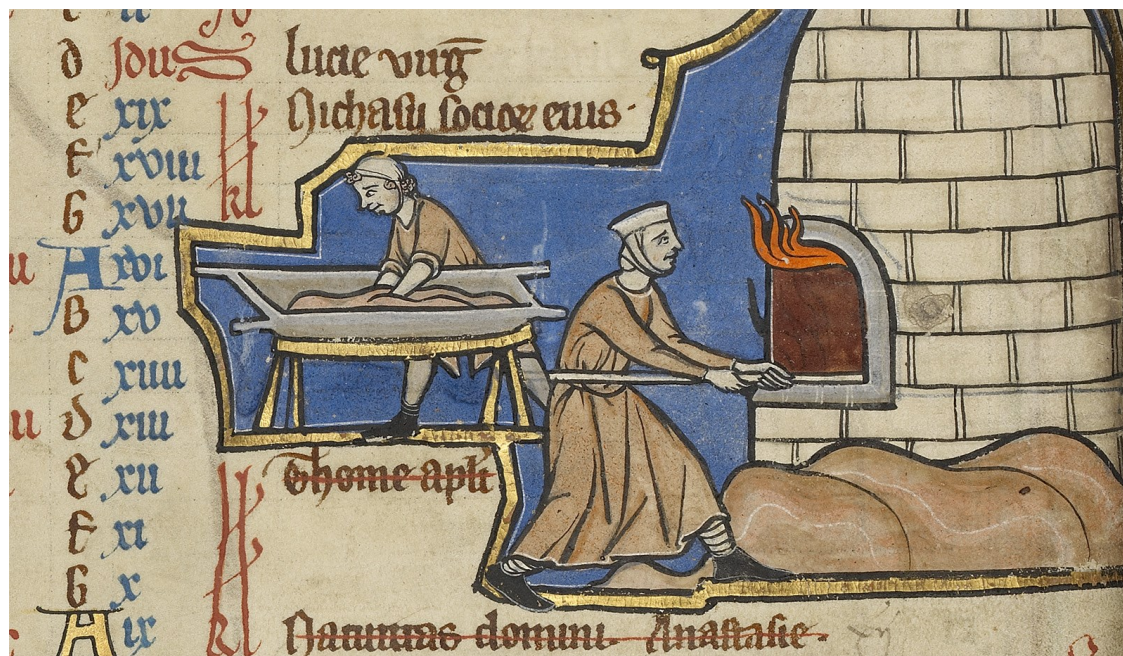 d Jdus lucie virg
e xix kl Nichasii socior eius.
f xviii
G xvii
A xvi
B xv
c xiiii
d xiii
e xii kl Thome apli
f xi
G x
A ix kl Natiuitas domini. Anastasie.